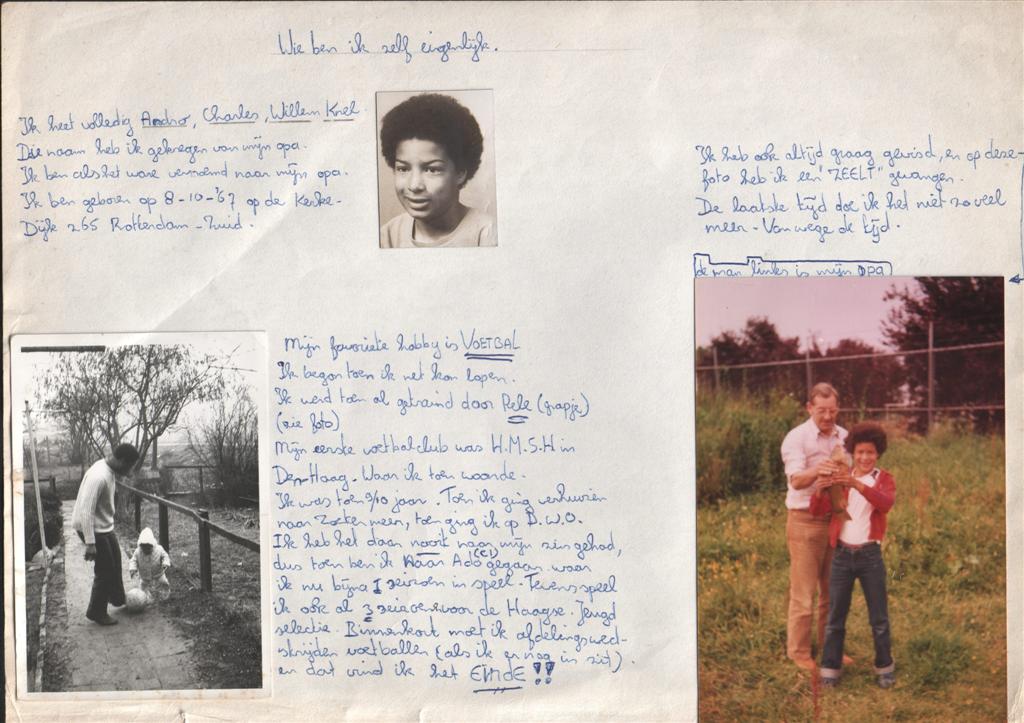 Wie ben ik zelf eigenlijk.
Ik heet volledig Andro, Charles, Willem Knel.
Die naam heb ik gekregen van mijn opa.
Ik ben als het ware vernoemd naar mijn opa.
Ik ben geboren op 8-10-'67 op de Kerke-
Dijk 265 Rotterdam-Zuid.
Ik heb ook altijd graag gevisd, en op deze
foto heb ik een "ZEELT" gevangen.
De laatste tijd doe ik het niet zo veel
meer. Vanwege de tijd.
de man links is mijn opa
Mijn favoriete hobby is VOETBAL
Ik begon toen ik net kon lopen.
Ik werd toen al getraind door Pele (grapje)
(zie foto)
Mijn eerste voetbalclub was H.M.S.H in
Den Haag. Waar ik toen woonde.
Ik was toen 9/10 jaar. Toen ik ging verhuizen
naar Zoetermeer, toen ging ik op D.W.O.
Ik heb het daar nooit naar mijn zin gehad,
dus toen ben ik naar Ado (C1) gegaan waar
ik nu bijna 1 seizoen in speel. Tevens speel
ik ook al 3 voor de Haagse Jeugd
selectie. Binnenkort moet ik afdelingswed-
strijden voetballen (als ik er nog in zit).
en dat vind ik het EINDE!!